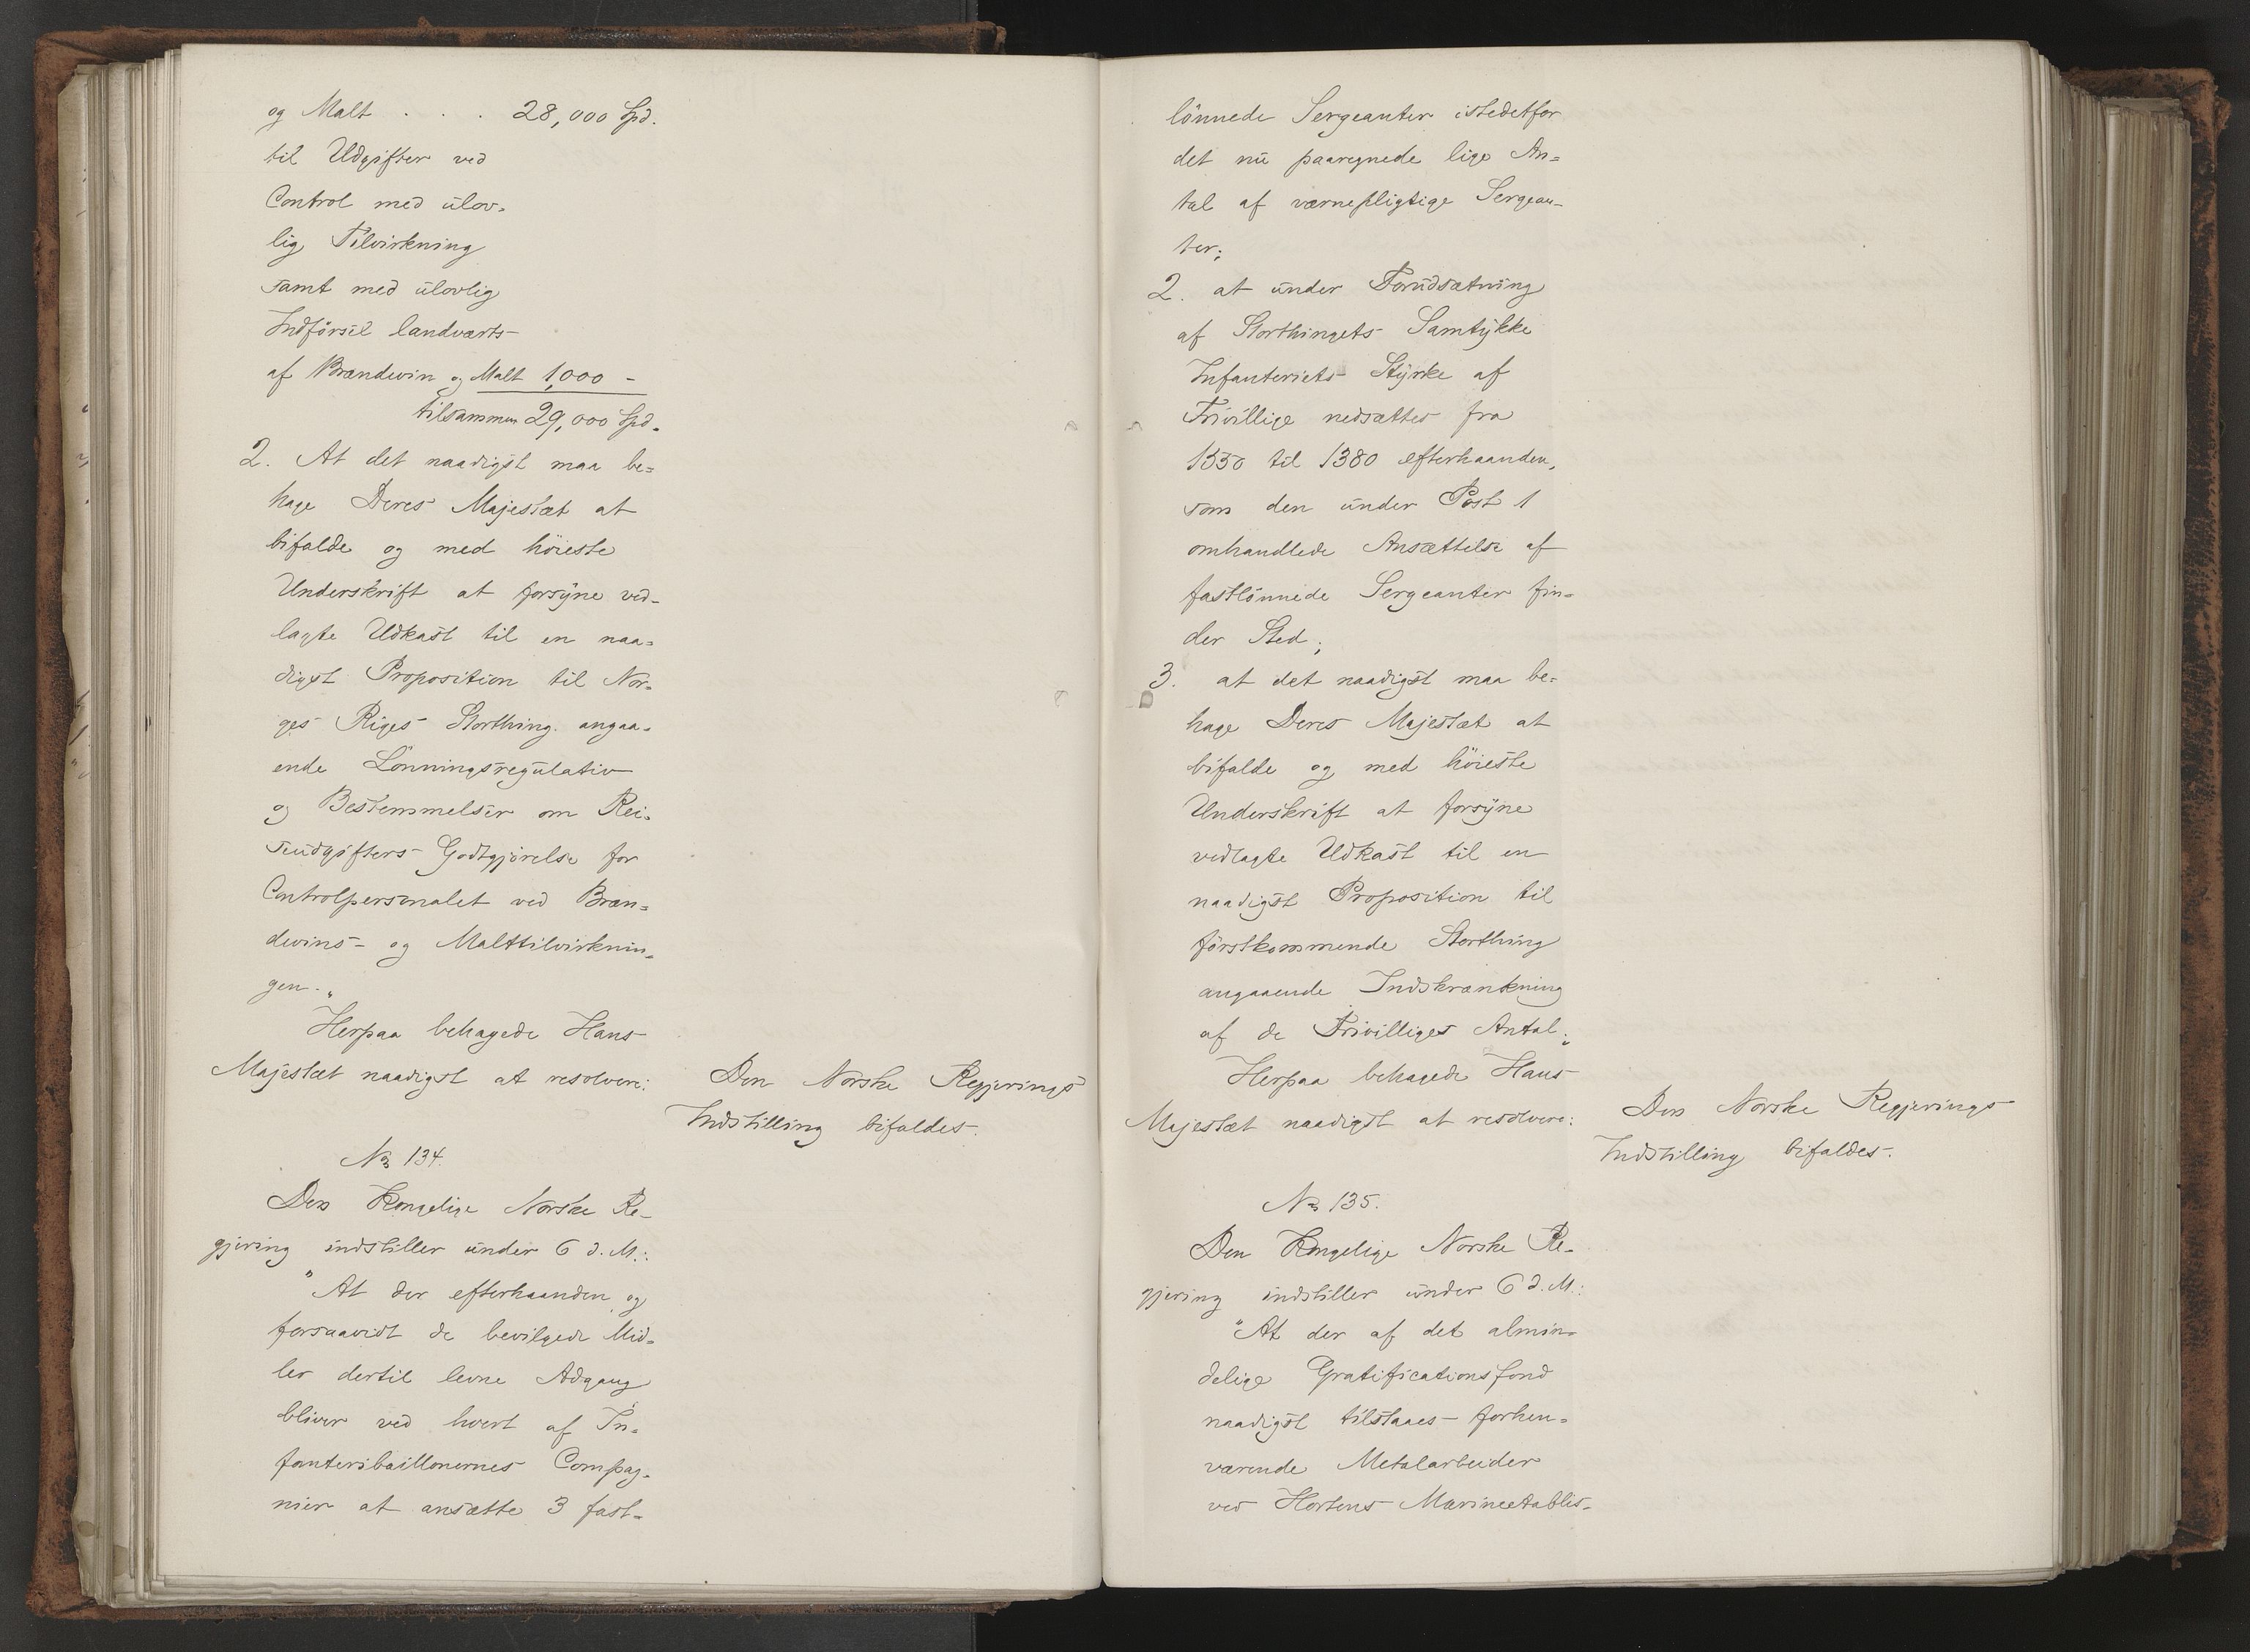 og Malt . . . 28,000 Spd.
til Udgifter ved
Control med ulov-
lig Tilvirkning
samt med ulovlig
Indförsel landværts
af Brændevin og Malt 1,000 -
tilsammen 29,000 Spd.
2. At det naadigst maa be-
hage Deres Majestæt at
bifalde og med höieste
Underskrift at forsyne ved-
lagte Udkast til en naa-
digst Proposition til Nor-
ges Riges Storthing angaa-
ende Lönningsregulativ
og Bestemmelser om Rei-
seudgifters Godtgjörelse for
Controlpersonalet ved Bræn-
devins- og Malttilvirknin-
gen."
Herpaa behagede Hans
Majestæt naadigst at resolvere:
Den Norske Regjerings
Indstilling bifaldes.
No 134.
Den Kongelige Norske Re-
gjering indstiller under 6 d. M.:
"At der efterhaanden og
forsaavidt de bevilgede Mid-
ler dertil levne Adgang
bliver ved hvert af In-
fanteribaillonernes Compag-
nier at ansætte 3 fast-
lönnede Sergeanter istedetfor
det nu paaregnede lige An-
tal af værnepligtige Sergean-
ter;
2. at under Forudsætning
af Storthingets Samtykke
Infanteriets Styrke af
Frivillige nedsættes fra
1550 til 1380 efterhaanden,
som den under Post 1
omhandlede Ansættelse af
fastlönnede Sergeanter fin-
der Sted;
3. at det naadigst maa be-
hage Deres Majestæt at
bifalde og med höieste
Underskrift at forsyne
vedlagte Udkast til en
naadigst Proposition til
förstkommende Storthing
angaaende Indskrænkning
af de Frivilliges Antal."
Herpaa behagede Hans
Majestæt naadigst at resolvere:
Den Norske Regjerings
Indstilling bifaldes.
No 135.
Den Kongelige Norske Re-
gjering indstiller under 6 d. M.:
"At der af det almin-
delige Gratificationsfond
naadigst tilstaaes forhen-
værende Metalarbeider
ved Hortens Marineetablis-